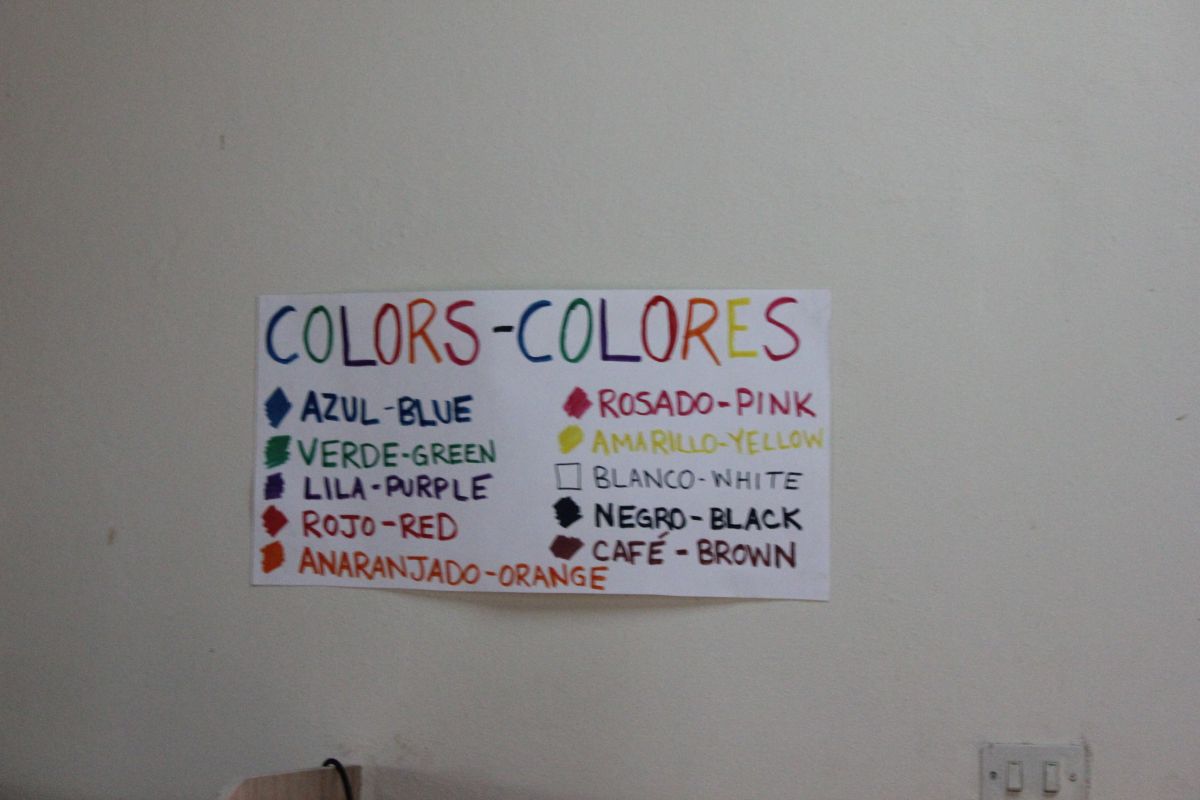 COLORS-COLORES
AZUL-BLUE
VERDE-GREEN
LILA-PURPLE
ROJO-RED
ANARANJADO-ORANGE
ROSADO-PINK
AMARILLO-YELLOW
BLANCO-WHITE
NEGRO-BLACK
CAFÉ-BROWN